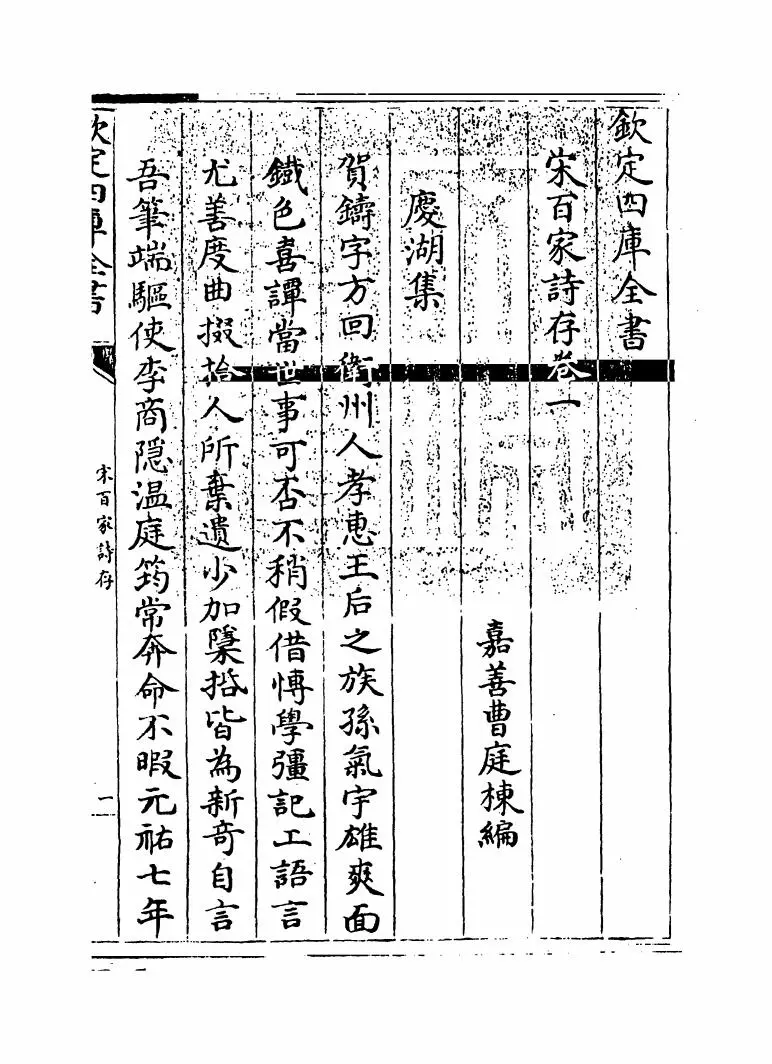 欽定四庫全書
宋百家詩存卷一
嘉善曹庭棟編
慶湖集
賀鑄字方回衛州人孝惠王后之族孫氣宇雄爽面
鐵色喜譚當世事可否不稍假借愽學彊記工語言
尤善度曲掇拾人所棄遺少加檃括皆為新奇自言
吾筆端驅使李商隱温庭筠常奔命不暇元祐七年
欽定四庫全書
宋百家詩存
一